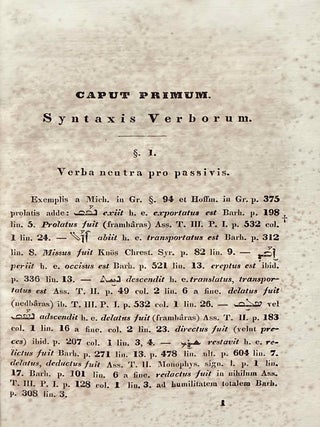 CAPUT PRIMUM.
Syntaxis Verborum.
§. 1.
Verba neutra pro passivis.
Exemplis a Mich. in Gr. §. 94 et Hoffm. in Gr. p. 375
prolatis adde: ܢܦܩ exiit h. e. exportatus est Barh. p. 198
lin. 5. Prolatus fuit (frambâras) Ass. T. III. P. I. p. 532 col. †
1 lin. 24. — ܐܙܠ abiit h. e. transportatus est Barh. p. 312
lin. 8. Missus fuit Knös Chrest. Syr. p. 82 lin. 9. —
periit h. e. occisus est Barh. p. 521 lin. 13. ereptus est ibid.
p. 336 lin. 13. — ܢܚܬ descendit h. e. translatus, transpor-
tatus est Ass. T. II. p. 49 col. 2 lin. 6 a fine. delatus fuit
(nedbâras) ib. T. III. P. I. p. 532 col. 1 lin. 26. — ܣܠܩ vel
adscendit h. e. delatus fuit (frambâras) Ass. T. II. p. 183
col. 1 lin. 16 a fine. col. 2 lin. 23. directus fuit (velut pre-
ces) ibid. p. 207 col. 1 lin. 3, 4. — restavit h. e. re-
lictus fuit Barh. p. 271 lin. 13. p. 478 lin. ult. p. 604 lin. 7.
delatus, deductus fuit Ass. T. II. Monophys. sign. l. p. 1 lin.
17. Barh. p. 101 lin. 6 a fine. redactus fuit in nihilum Ass.
T. III. P. I. p. 128 col. 1 lin. 3. ad humilitatem totalem Barh.
p. 308 lin. 3.
1